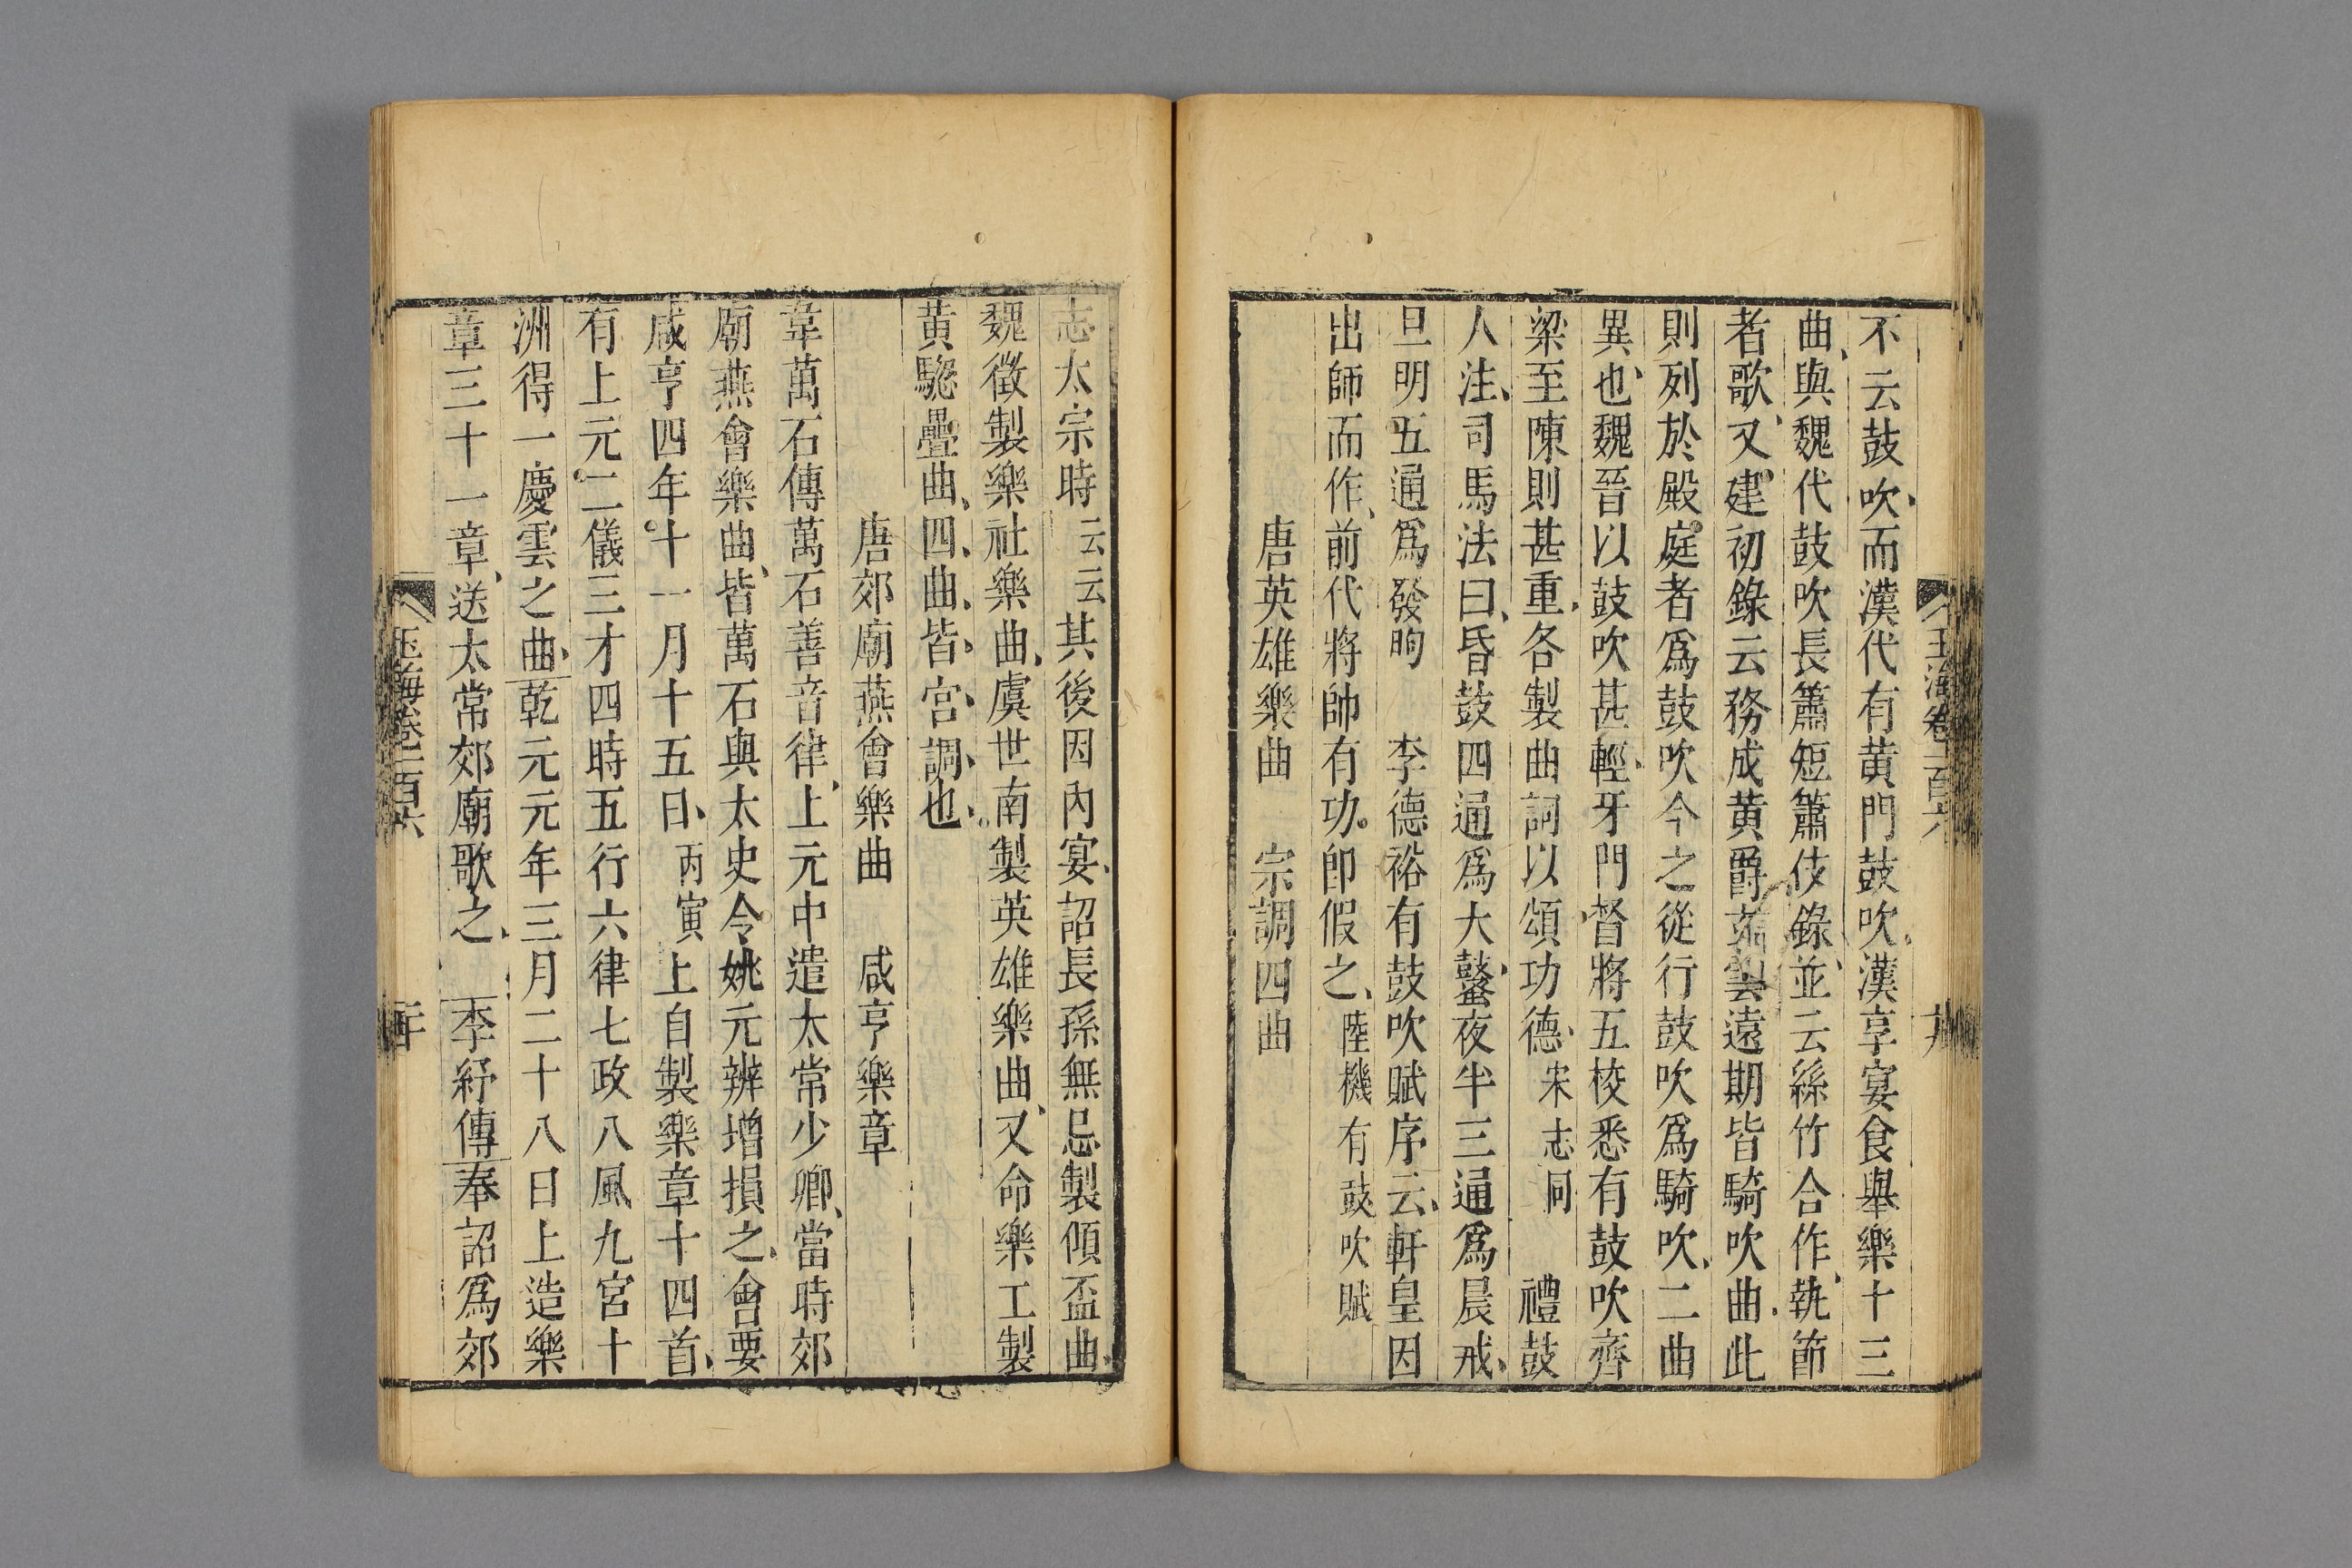 玉海卷一百六 十九
不云鼓吹而漢代有黄門鼓吹漢享宴食舉樂十三
曲與魏代鼓吹長簫短簫伎錄並云絲竹合作執節
者歌又建初錄云務成黄爵𤣥雲遠期皆騎吹曲此
則列於殿庭者爲鼓吹今之從行鼓吹爲騎吹二曲
異也魏晉以鼓吹甚輕牙門督將五校悉有鼓吹齊
梁至陳則甚重各製曲詞以頌功德宋志同 禮鼓
人注司馬法曰昏鼓四通爲大鼜夜半三通爲晨戒
旦明五通爲發昫 李德裕有鼓吹賦序云軒皇因
出師而作前代將帥有功卽假之陸機有鼓吹賦
唐英雄樂曲 宗調四曲
志太宗時云云其後因内宴詔長孫無忌製傾盃曲
魏徵製樂社樂曲虞世南製英雄樂曲又命樂工製
黄驄疊曲四曲皆宫調也
唐郊廟燕會樂曲 咸亨樂章
韋萬石傳萬石善音律上元中遣太常少卿當時郊
廟燕會樂曲皆萬石與太史令姚元辨增損之會要
咸亨四年十一月十五日丙寅上自製樂章十四首
有上元二儀三才四時五行六律七政八風九宮十
洲得一慶雲之曲乾元元年三月二十八日上造樂
章三十一章送太常郊廟歌之 李紓傳奉詔爲郊
玉海卷一百六 二十